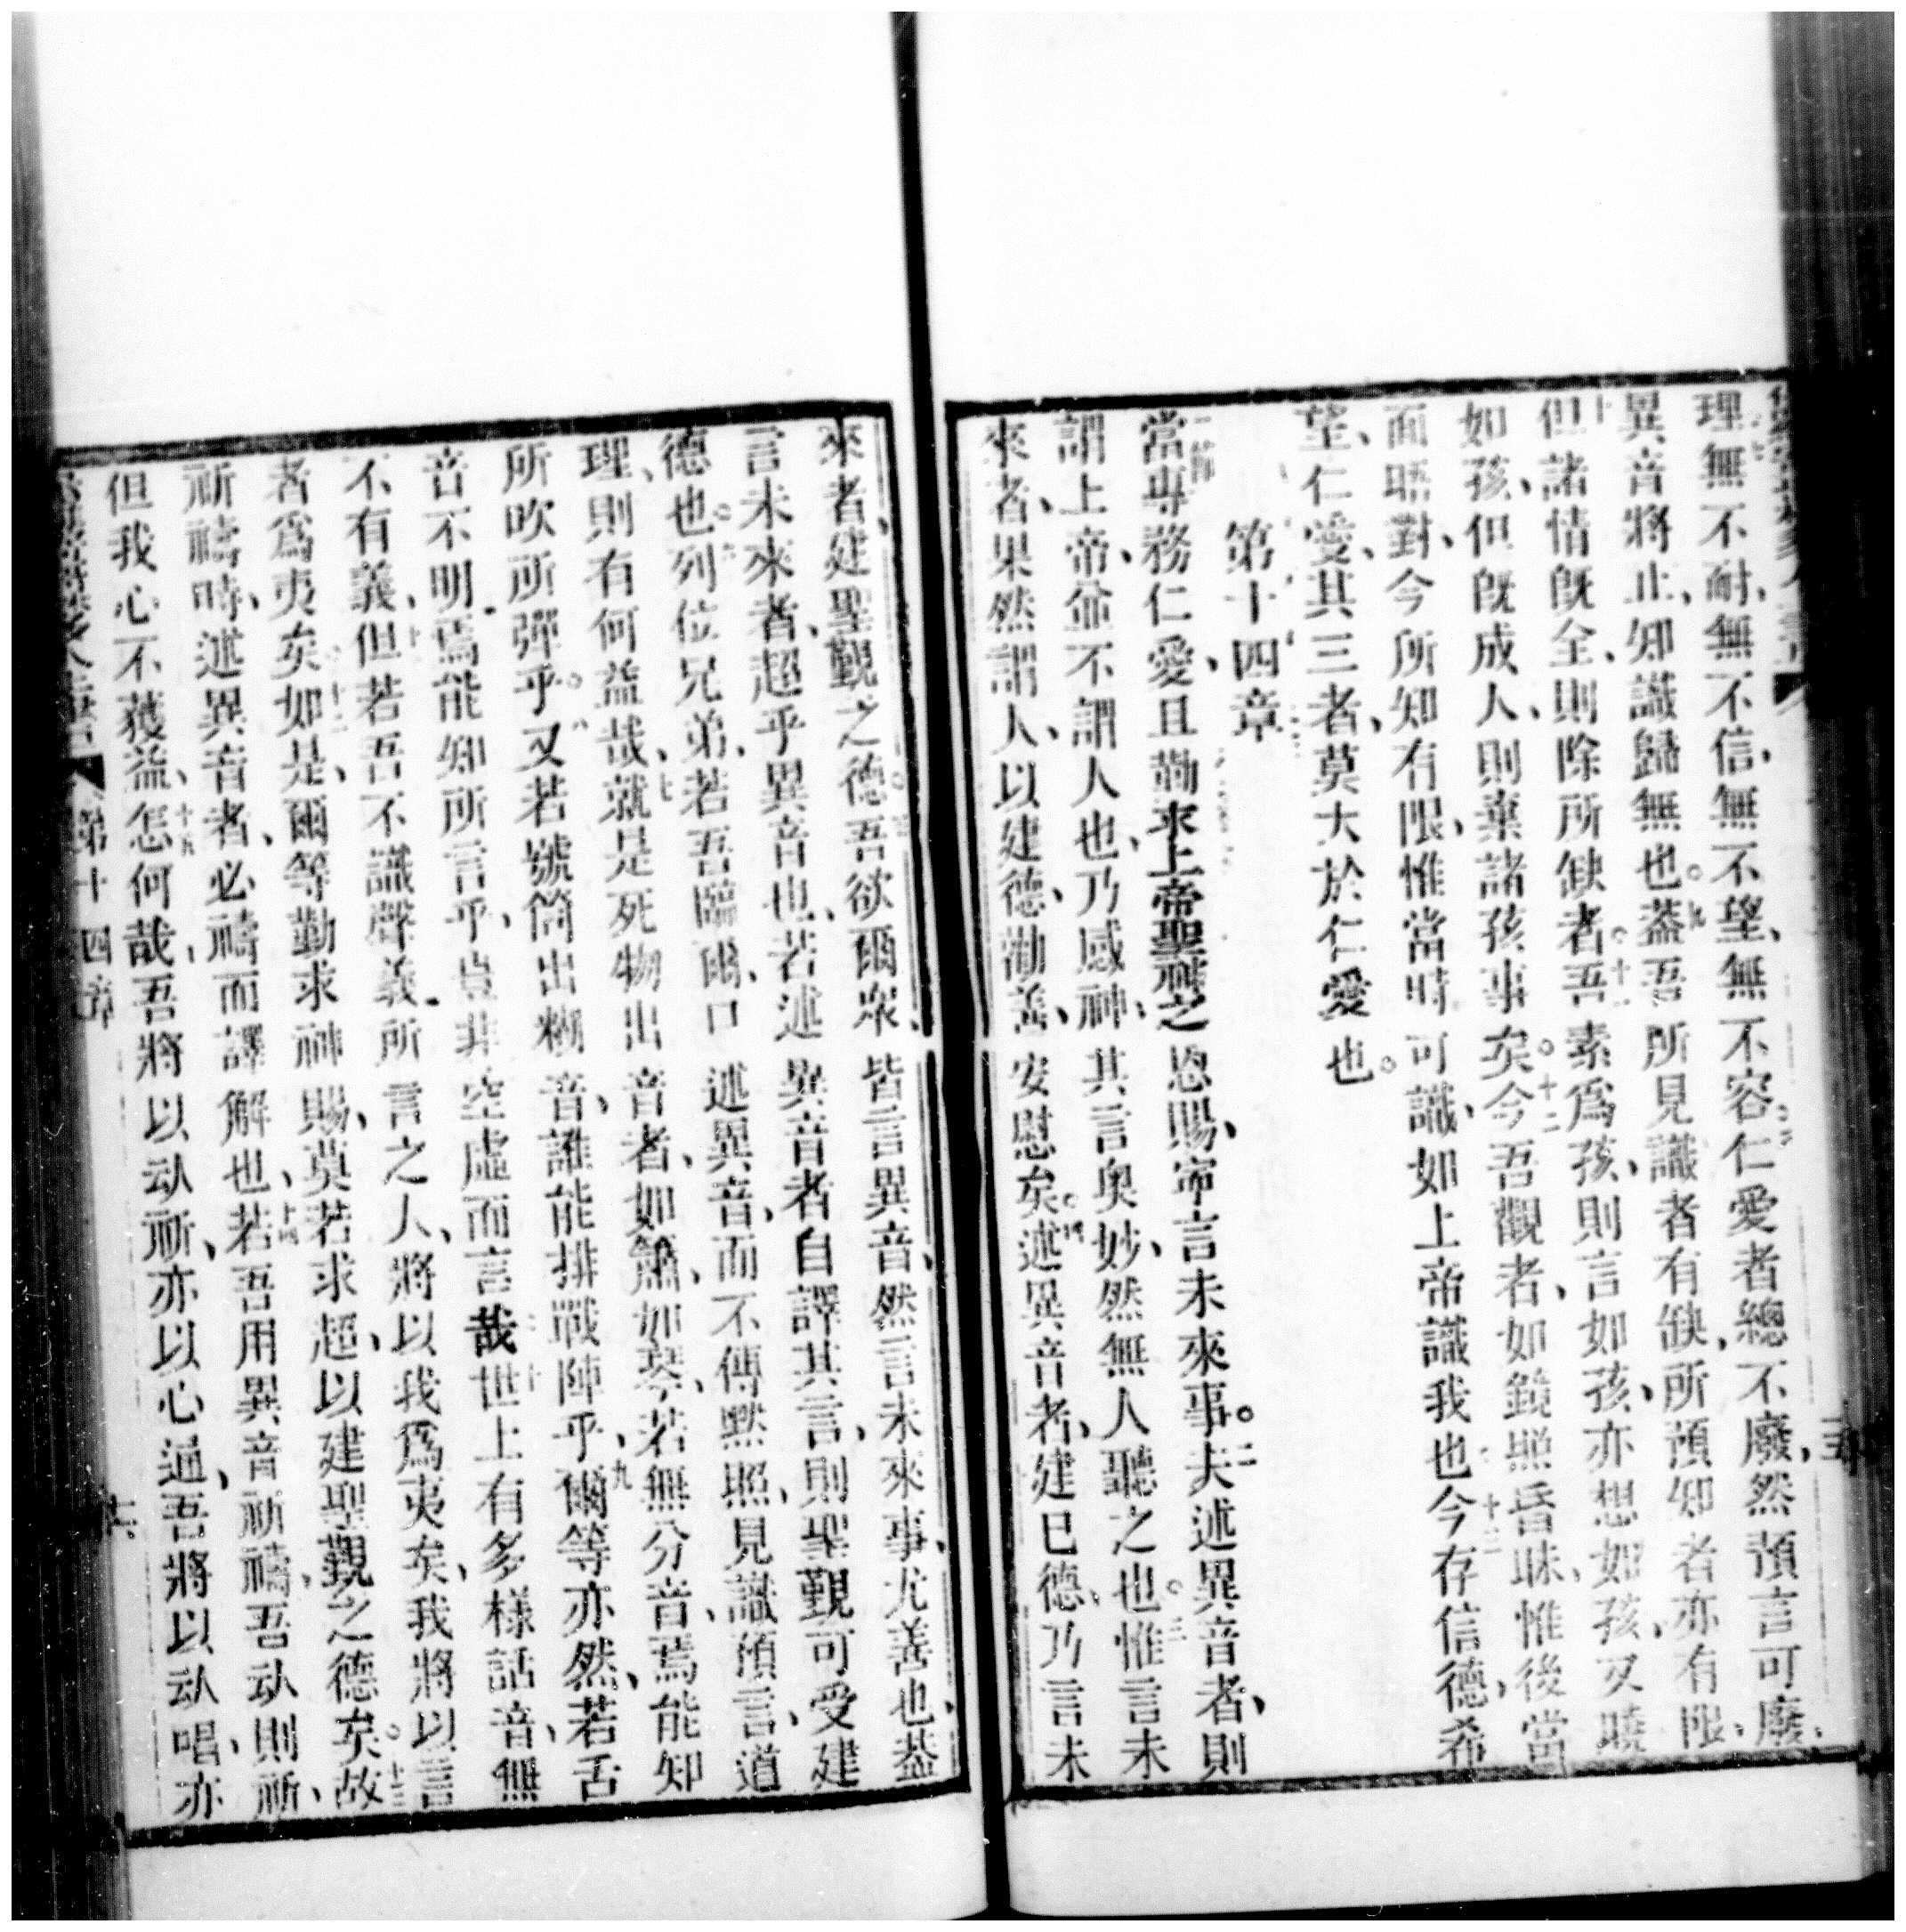 理無不耐、無不信、無不望、無不容、仁愛者總不廢、然預言可廢、
異音將止、知識歸無也。蓋吾所見識者有缺、所預知者亦有限、
但諸情旣全、則除所缺者。十一吾素爲孩、則言如孩、亦想如孩、又曉
如孩、但旣成人、則棄諸孩事矣。十二今吾觀者、如鏡照昏昧、惟後當
面晤對、今所知有限、惟當時可識、如上帝識我也十三今存信德、希
望、仁愛、其三者、莫大於仁愛也。
第十四章
當專務仁愛、且勤求上帝聖神之恩賜、宷言未來事。二夫述異音者、則
謂上帝、並不謂人也、乃感神、其言奧妙、然無人聽之也。三惟言未
來者、果然謂人、以建德、勸善、安慰矣。四述異音者、建已德、乃言未
來者、建聖覲之德。吾欲爾衆、皆言異音、然言未來事、尤善也、蓋
言未來者、超乎異音也、若述異音者自譯其言、則聖覲可受建
德也。列位兄弟、若吾臨爾、口述異音、而不傅黙照、見識、預言、道
理、則有何益哉、七就是死物出音者、如簫、如琴、若無分音、焉能知
所吹所彈乎。八又若號筒出糊音、誰能排戰陣乎、九爾等亦然、若舌
音不明、焉能知所言乎、豈非空虛而言哉十世上有多樣話音、無
不有義、十一但若吾不識聲義、所言之人、將以我爲夷矣、我將以言
者爲夷矣。十二如是、爾等勤求神賜、莫若求超、以建聖覲之德矣。十三故
祈禱時、述異音者、必禱而譯解也、十四若吾用異音祈禱、吾㳂則祈、
但我心不獲益、十五怎何哉、吾將以㳂祈、亦以心通、吾將以㳂唱、亦
第十四章